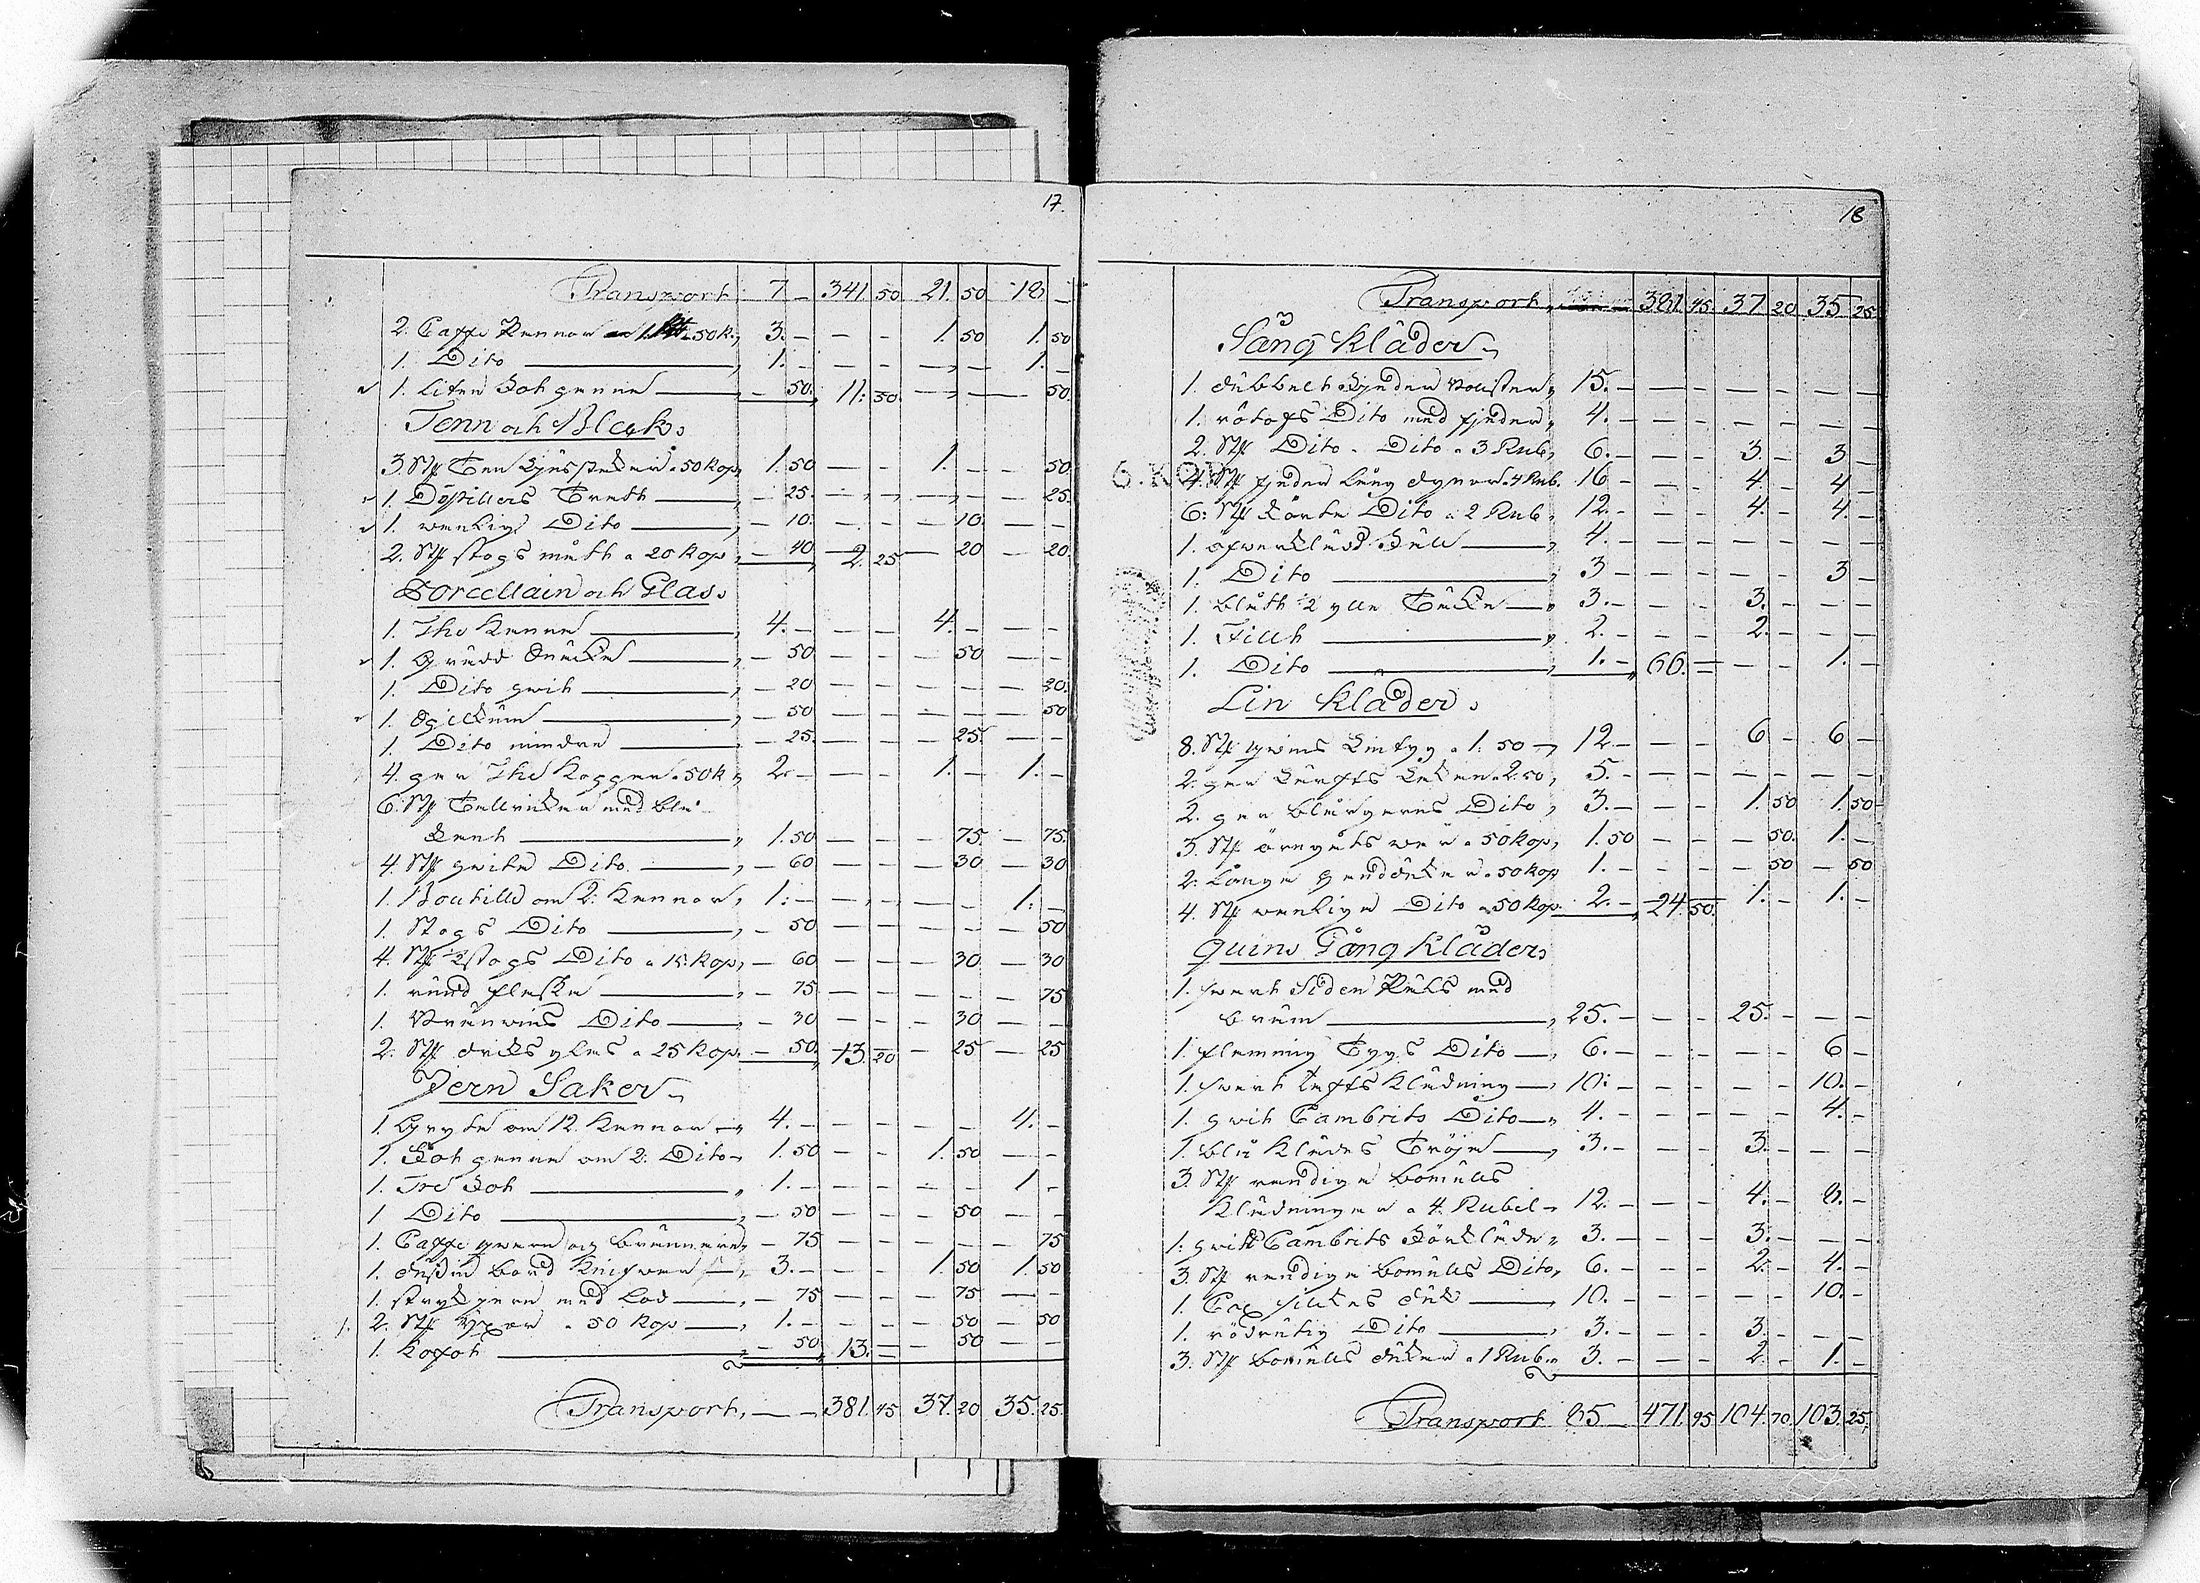 17.
Transport 7 — 341 50 21. 50 18 —
2. Caffe Kannor a 1. 50 k. 3. — — — 1. 50 1. 50
1. Dito 1. — — — — — 1. —
1. liten Kok panna — 50. 11: 50. — — — 50.
Tenn och Bleck:
3 St: Ten Ljusstakar a 50 Kop 1. 50 — — 1. — — 50
1. Tratt — 25. — — — — — 25.
1. wanlig Dito — 10. — — — 10. — —
2. St: stops mått a 20 Kop — 40 2. 25 — 20 — 20.
Porcellain och Glas.
1. The Kanna 4. — — — 4. — — —
1. — 50 — — — 50 — —
1. Dito hwit — 20 — — — — — 20.
1. — 50 — — — — — 50
1. Dito mindre — 25. — — — 25. — —
4. par The Koppar a 50 k 2. — — — 1. — 1. —
6. St: Tallrickar med blå
kant 1. 50 — — — 75 — 75
4. St: hwita Dito — 60 — — — 30 — 30
1. Boutille om 2. Kannor 1: — — — — — 1. —
1. Stops Dito — 50 — — — — — 50
4. St: ½ stops Dito a 15. Kop — 60 — — — 30 — 30
1. rund flaska — 75 — — — — — 75
1. Bränwins Dito — 30 — — — 30 — —
2. St: dricks glas a 25 Kop — 50. 13. 20 — 25 — 25
Jern Saker
1. Gryta om 12. Kannor 4. — — — — — 4. —
1. Kok panna om 2. Dito 1. 50 — — 1. 50 — —
1. Tre fot 1. — — — — — 1 —
1 Dito — 50 — — — 50 — —
1. Caffe qwarn och brännare — 75 — — — — — 75
1. dussin bord Knifwar 3. — — — 1. 50 1. 50
1. strykjern med lod — 75 — — — 75 — —
2. St: Yxor a 50 Kop 1. — — — — 50 — 50
1. Kofot — 50 13. — — 50 — —
Transport, — — 381. 45 37. 20 35. 25.
18
Transport 381. 45. 37 20 35. 25
Säng Kläder
1. dubbelt fjeder Bolster 15. — — — — — — —
1. Dito med fjeder 4. — — — — — — —
2. St: Dito Dito a 3 Rub. 6. — — — 3. — 3 —
4. St: fjeder lång dynor a 4 Rub. 16 — — — 4. — 4 —
6: St: korta Dito a 2 Rub 12. — — — 4. — 4. —
1. 4. — — — — — — —
1. Dito 3 — — — — — 3 —
1. Täcke 3. — — — 3. — — —
1. Fillt 2. — — — 2. — — —
1. Dito 1. — 66. — — — 1. —
Lin Kläder
8. St: a 1: 50 12. — — — 6 — 6 —
2. par lärfts lakan a 2. 50 5. — — — — — — —
2. par blårgarns Dito 3. — — — 1. 50 1. 50
3. St: örngåts war a 50 Kop 1. 50 — — — 50. 1. —
2. långa handdukar a 50 Kop 1. — — — — 50 — 50
4. St: wanliga Dito a 50 Kop 2. — 24. 50. 1. — 1. —
Quins Gång Kläder
1. swart Siden med
bräm 25. — — — 25. — — —
1. flamming Tygs Dito 6. — — — — — 6 —
1. swart Tafts Klädning 10: — — — — — 10. —
1. hwit Cambrits Dito 4. — — — — — 4. —
1. blå Klädes Tröja 3. — — — 3. — — —
3. St: randiga bomuls
Klädningar a 4. Rubel 12. — — — 4. — 8. —
1: hwitt Cambrits Förkläde 3. — — — 3. — — —
3. St: randiga bomuls Dito 6. — — — 2. — 4. —
1. silkes duk 10. — — — — — 10. —
1. rödrutig Dito 3. — — — 3. — — —
3. St: bomuls dukar a 1 Rub. 3. — — — 2. — 1. —
Transport 85 — 471. 95 104. 70. 103. 25,